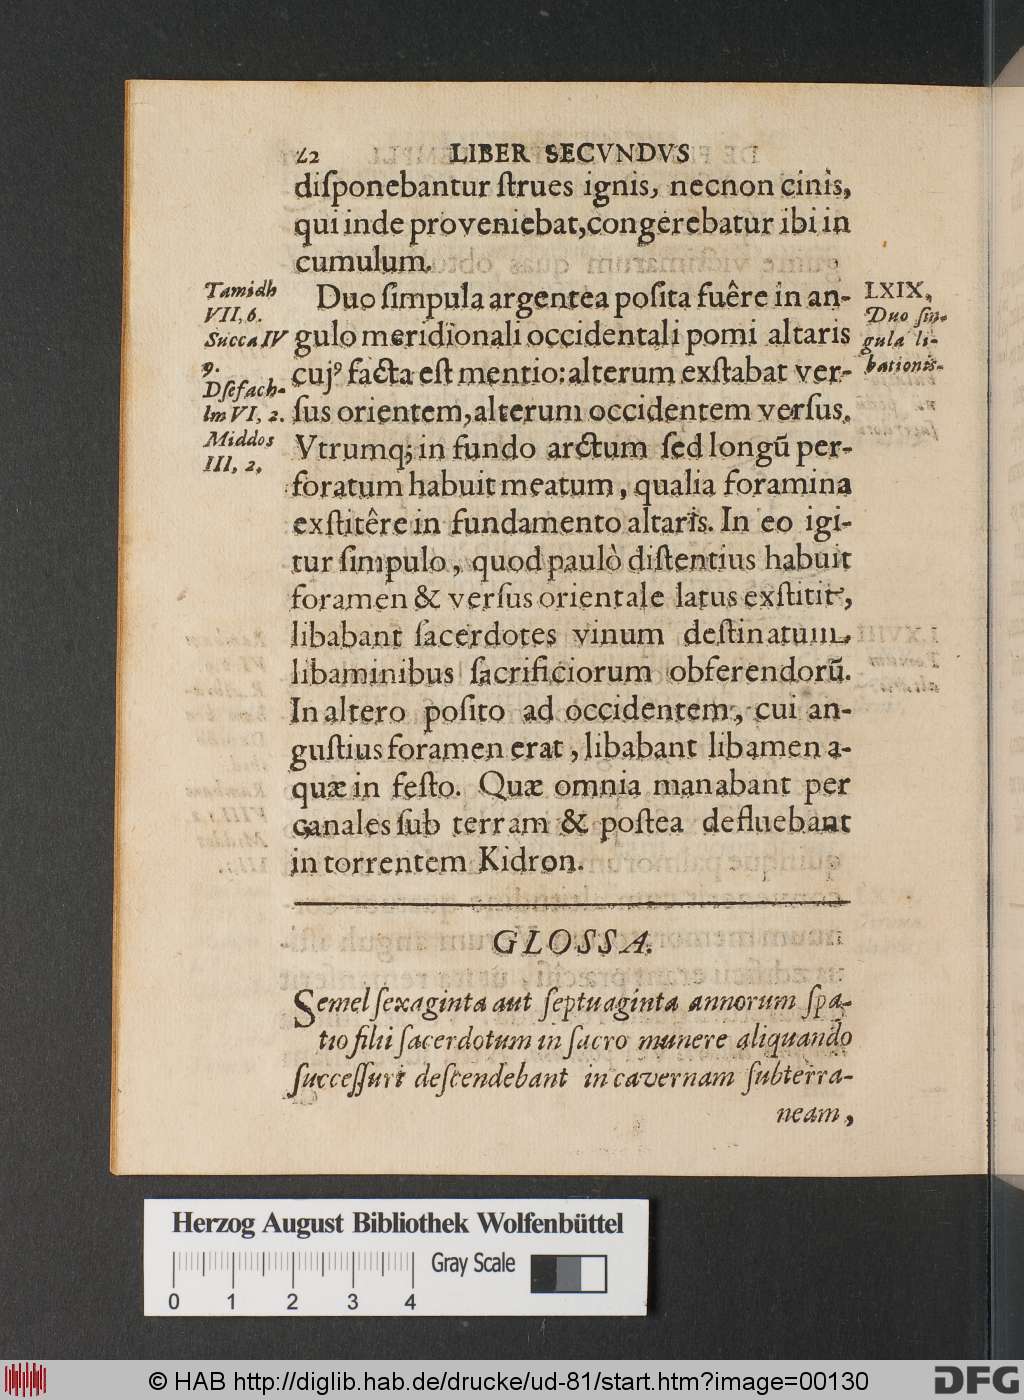 42 LIBER SECVNDVS
diſponebantur ſtrues ignis, necnon cinis,
qui inde proveniebat,congerebatur ibi in
cumulum.
Duo ſimpula argentea poſita fuêre in an-
gulo meridionali occidentali pomi altaris
cujꝰ facta eſt mentio: alterum exſtabat ver-
ſus orientem,alterum occidentem verſus.
Vtrumq; in fundo arctum ſed longũ per-
foratum habuit meatum, qualia foramina
exſtitêre in fundamento altaris. In eo igi-
tur ſimpulo, quod paulò diſtentius habuit
foramen & verſus orientale latus exſtitit,
libabant ſacerdotes vinum deſtinatum
libaminibus ſacrificiorum obferendorũ.
In altero poſito ad occidentem, cui an-
guſtius foramen erat, libabant libamen a-
quæ in feſto. Quæ omnia manabant per
canales ſub terram & poſtea defluebant
in torrentem Kidron.
Tamidh
VII, 6.
Succa IV
9.
Dſefach-
lm VI, 2.
Middos
III, 2.
LXIX,
Duo ſin-
gula li-
bationis.
GLOSSA.
Semel ſexaginta aut ſeptuaginta annorum ſpa-
tio filii ſacerdotum in ſacro munere aliquando
ſucceſſuri deſcendebant in cavernam ſubterra-
neam,
Herzog August Bibliothek Wolfenbüttel
Gray Scale
0 1 2 3 4
© HAB http://diglib.hab.de/drucke/ud-81/start.htm?image=00130
DFG